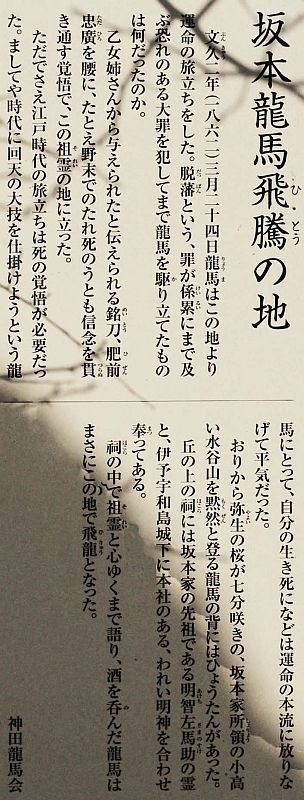 坂本龍馬飛騰の地
文久二年(一八六二)三月二十四日龍馬はこの地より
運命の旅立ちをした。脱藩という、罪が係累にまで及
ぶ恐れのある大罪を犯してまで龍馬を駆り立てたもの
は何だったのか。
乙女姉さんから与えられたと伝えられる銘刀、肥前
忠廣を腰に、たとえ野末でのたれ死のうとも信念を貫
き通す覚悟で、この祖霊の地に立った。
ただでさえ江戸時代の旅立ちは死の覚悟が必要だっ
た。ましてや時代に回天の大技を仕掛けようという龍
馬にとって、自分の生き死になどは運命の本流に放りな
げて平気だった。
おりから弥生の桜が七分咲きの、坂本家所領の小高
い水谷山を黙然と登る龍馬の背にはひょうたんがあった。
丘の上の祠には坂本家の先祖である明智左馬助の霊
と、伊予宇和島城下に本社のある、われい明神を合わせ
奉ってある。
祠の中で祖霊と心ゆくまで語り、酒を呑んだ龍馬は
まさにこの地で飛龍となった。
神田龍馬会